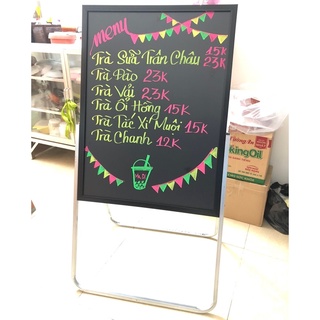 menu
Trà Sữa Trân Châu 15K
23K
Trà Đào 23K
Trà Vải 23K
Trà Ổi Hồng 15K
Trà Tắc Xí Muội 15K
Trà Chanh 12K
kingOil